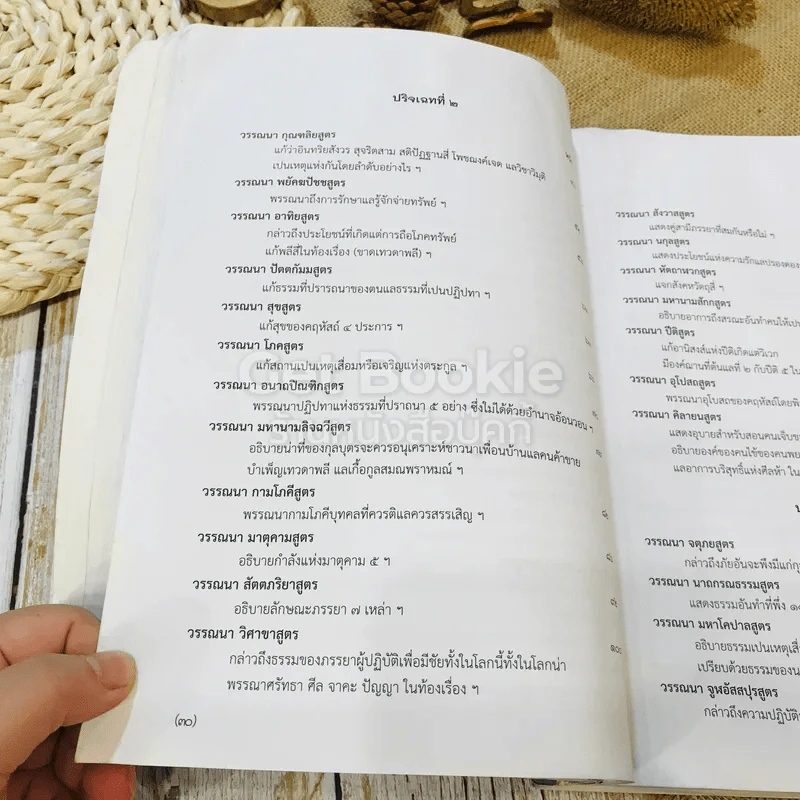 ปริจเฉทที่ ๒
วรรณนา กุณฑลิยสูตร
แก้ว่าอินทริยสังวร สุจริตสาม สติปัฏฐานสี่ โพชฌงค์เจด แลวิชาวิมุติ
เปนเหตุแห่งกันโดยลำดับอย่างไร ฯ
วรรณนา พยัคฆปัชชสูตร
พรรณนาถึงการรักษาแลรู้จักจ่ายทรัพย์ ฯ
วรรณนา อาทิยสูตร
กล่าวถึงประโยชน์ที่เกิดแต่การถือโภคทรัพย์
แก้พลีสี่ในท้องเรื่อง (ขาดเทวดาพลี) ฯ
วรรณนา ปัตตกัมมสูตร
แก้ธรรมที่ปรารถนาของตนแลธรรมที่เปนปฏิปทา ฯ
วรรณนา สุขสูตร
แก้สุขของคฤหัสถ์ ๔ ประการ ฯ
วรรณนา โภคสูตร
แก้สถานเปนเหตุเสื่อมหรือเจริญแห่งตระกูล ฯ
วรรณนา อนาถปิณฑิกสูตร
พรรณนาปฏิปทาแห่งธรรมที่ปราถนา ๕ อย่าง ซึ่งไม่ได้ด้วยอำนาจอ้อนวอน ฯ
วรรณนา มหานามลิจฉวีสูตร
อธิบายน่าที่ของกุลบุตรจะควรอนุเคราะห์ชาวนาเพื่อนบ้านแลคนค้าขาย
บำเพ็ญเทวดาพลี แลเกื้อกูลสมณพราหมณ์ ฯ
วรรณนา กามโภคีสูตร
พรรณนากามโภคีบุทคลที่ควรติแลควรสรรเสิญ ฯ
วรรณนา มาตุคามสูตร
อธิบายกำลังแห่งมาตุคาม ๕ ฯ
วรรณนา สัตตภริยาสูตร
อธิบายลักษณะภรรยา ๗ เหล่า ฯ
วรรณนา วิศาขาสูตร
กล่าวถึงธรรมของภรรยาผู้ปฏิบัติเพื่อมีชัยทั้งในโลกนี้ทั้งในโลกน่า
๑๐๐
พรรณาศรัทธา ศีล จาคะ ปัญญา ในท้องเรื่อง ฯ
(๓๐)
วรรณนา สังวาสสูตร
แสดงคู่สามีภรรยาที่สมกันหรือไม่ ฯ
วรรณนา นกุลสูตร
แสดงประโยชน์แห่งความรักแลปรองดอง
วรรณนา หัตถาฬวกสูตร
แจกสังคหวัตถุสี่ ฯ
วรรณนา มหานามสักกสูตร
อธิบายอาการถึงสรณะอันทำคนให้เป
วรรณนา ปีติสูตร
แก้อานิสงส์แห่งปีติเกิดแต่วิเวก
มีองค์ฌานที่ต้นแลที่ ๒ กับปีติ ๕ ใน
วรรณนา อุโปสถสูตร
พรรณนาอุโบสถของคฤหัสถ์โดยพิ
วรรณนา คิลายนสูตร
แสดงอุบายสำหรับสอนคนเจ็บชา
อธิบายองค์ของคนไข้ของคนพย
แลอาการบริสุทธิ์แห่งศีลห้า ใน
วรรณนา จตุภยสูตร
กล่าวถึงภัยอันจะพึงมีแก่กุ
วรรณนา นาถกรณธรรมสูตร
แสดงธรรมอันทำที่พึ่ง ๑๐
วรรณนา มหาโคปาลสูตร
อธิบายธรรมเปนเหตุเสื่
เปรียบด้วยธรรมของน
วรรณนา จูฬอัสสปุรสูตร
กล่าวถึงความปฏิบัติ
Cat Bookie
ร้านหนังสือบุ๊คกี้